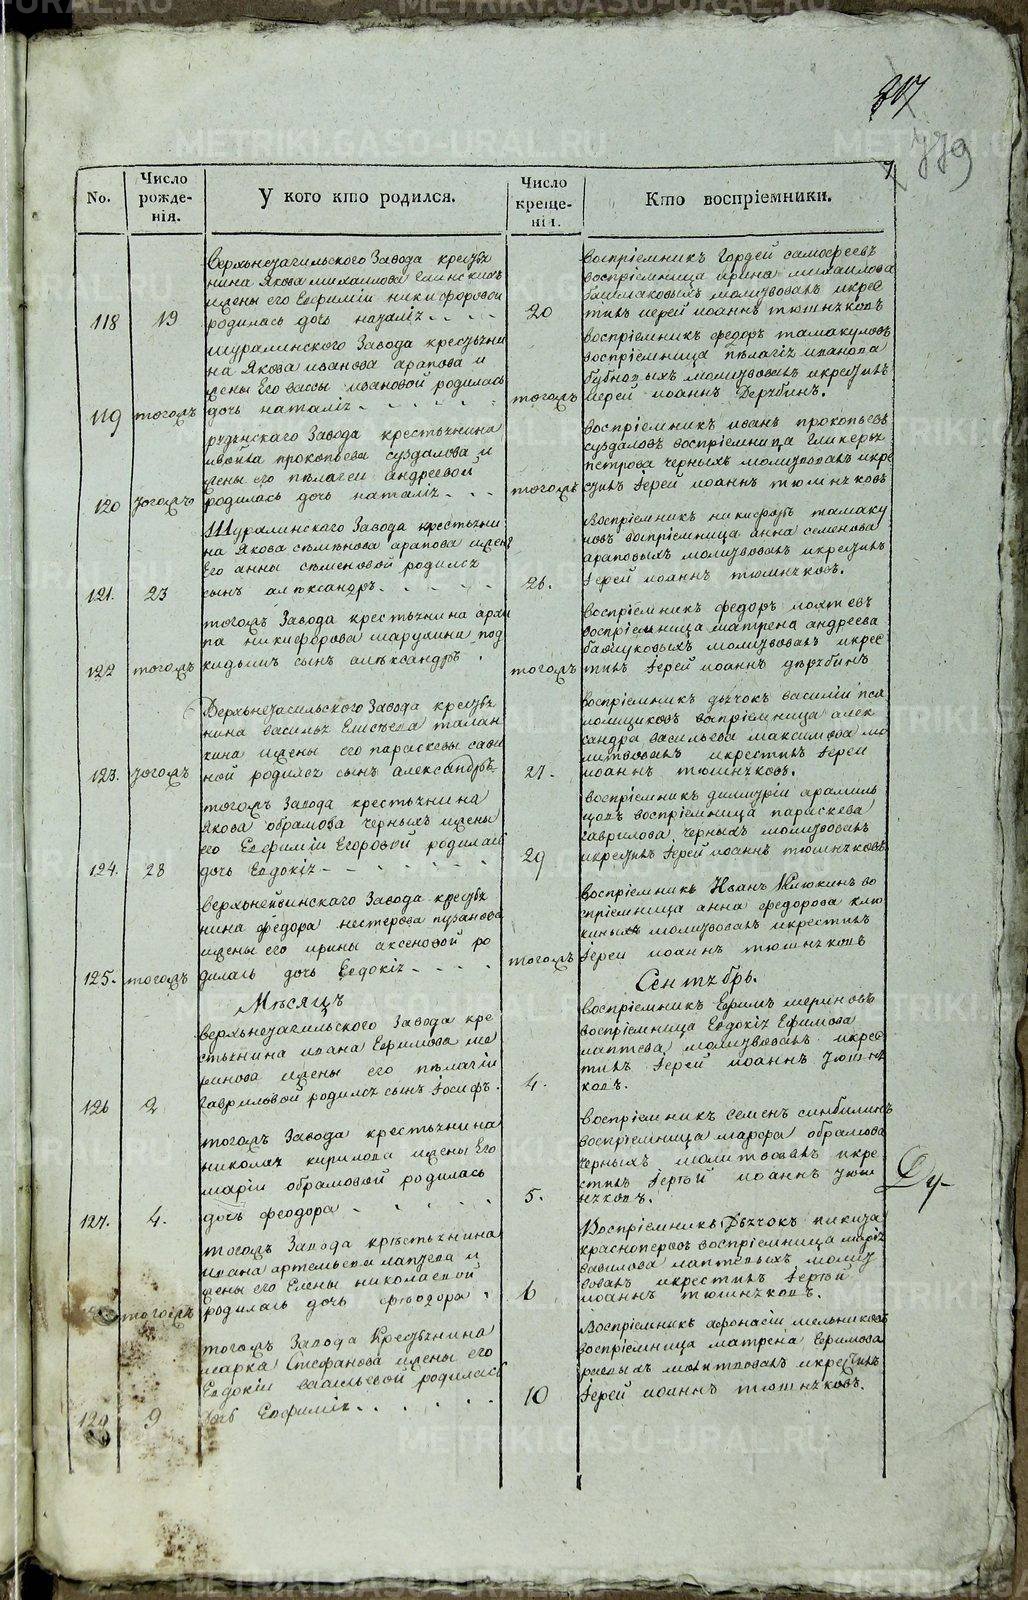 317
779
No.
Число рожде-нія.
У кого кто родился.
Число креще-нія.
Кто воспріемники.
верхънетагильского Завода крестья
нина Якова михаилова
жены его Евфиміи никифоровой
118 19 родилась дочь наталія - - - -
20
воспріемникъ Гордей самофеевъ
воспріемница ирина михаилова
башмаковыхъ молитвовалъ икрес
тилъ иерей иоаннъ тюшняковъ
шуралинского Завода крестьяни
на Якова иванова арапова и
жены Его вассы ивановой родилась
119 тогожъ дочь наталія - - - -
тогожъ
воспріемникъ федоръ тамакуловъ
воспріемница пелагія иванова
бубновыхъ молитвовалъ икрестилъ
иерей иоаннъ Дерябинъ.
рудянскаго Завода крестьянина
прокопьева суздалова и
жены его пелагеи андреевой
120 тогожъ родилась дочь наталія - - -
тогожъ
воспріемникъ иоанъ прокопьевъ
суздаловъ воспріемница гликерья
петрова черныхъ молитвовалъ икре
стилъ Іерей иоаннъ тюшняковъ
Шуралинскаго Завода крестьяни
на Якова семенова арапова жены
Его анны семеновой родился
121. 23 сынъ александръ. - - -
26.
воспріемникъ никифоръ тамаку
ловъ воспріемница анна семенова
араповыхъ молитвовалъ икрестилъ
Іерей иоаннъ тюшняковъ.
тогожъ Завода крестьянина
никифорова под
122 тогожъ кидышъ сынъ александръ .
тогожъ
воспріемникъ федоръ
воспріемница матрена андреева
молитвовалъ икрес
тилъ Іерей иоаннъ дерябинъ
Верхънетагильского Завода крестья
нина василья Елисеева талан
кина жены его парасковьи сави
123. тогожъ ной родился сынъ александръ
27.
воспріемникъ дьячокъ василіи пса
ломщиковъ воспріемница алек
сандра васильева максимова мо
литвовалъ икрестилъ Іереи
иоаннъ тюшняковъ.
тогожъ Завода крестьянина
Якова обрамова черныхъ жены
его Евфиміи Егоровой родилась
124. 28 дочь Евдокія - - -
29
воспріемникъ димитріи арамиль
цовъ воспріемница параскева
гаврилова черныхъ молитвовалъ
икрестилъ Іерей иоаннъ тюшняковъ
верхънейвинскаго Завода крестья
нина федора нестерова пузанова
жены его ирины аксеновой ро
125. тогожъ дилась дочь Евдокія - - - -
тогожъ
воспріемникъ Иванъ Клюкинъ во
спріемница анна федорова клю
киныхъ молитвовалъ икрестилъ
Іереи иоаннъ тюшняковъ
Мѣсяцъ
Сентябрь.
верхънетагильского Завода кре
стьянина ивана Ефимова ме
ринова жены его пелагіи
126 2 гавриловой родился сынъ Іосифъ.
4.
воспріемникъ Ефимъ мериновъ
воспріемница Евдокія Ефимова
лаптева молитвовалъ икрес
тилъ Іерей иоаннъ тюшня
ковъ.
тогожъ Завода крестьянина
николая кирилова жены Его
маріи обрамовой родилась
127. 4. дочь феодора - - - -
5.
воспріемникъ семенъ
воспріемница марфа обрамова
черныхъ молитвовалъ икре
стилъ Іерей иоаннъ тюш
няковъ.
тогожъ Завода крестьянина
ивана артемьева лаптева и
жены его Елены николаевой
тогожъ родилась дочь феодора .
6
Воспріемникъ Дьячокъ никита
красноперовъ воспріемница марія
вавилова лаптевыхъ молит
вовалъ икрестилъ Іерей
иоаннъ тюшняковъ.
тогожъ Завода Крестьянина
марка Стефанова жены его
Евдокіи васильевой родилась
129 9 дочь Евфимія. - - -
10
Воспріемникъ афонасіи мельниковъ
воспріемница матрена Ефимова
молитвовалъ икрестилъ
Іерей иоаннъ тюшняковъ.
METRIKI.GASO-URAL.RU